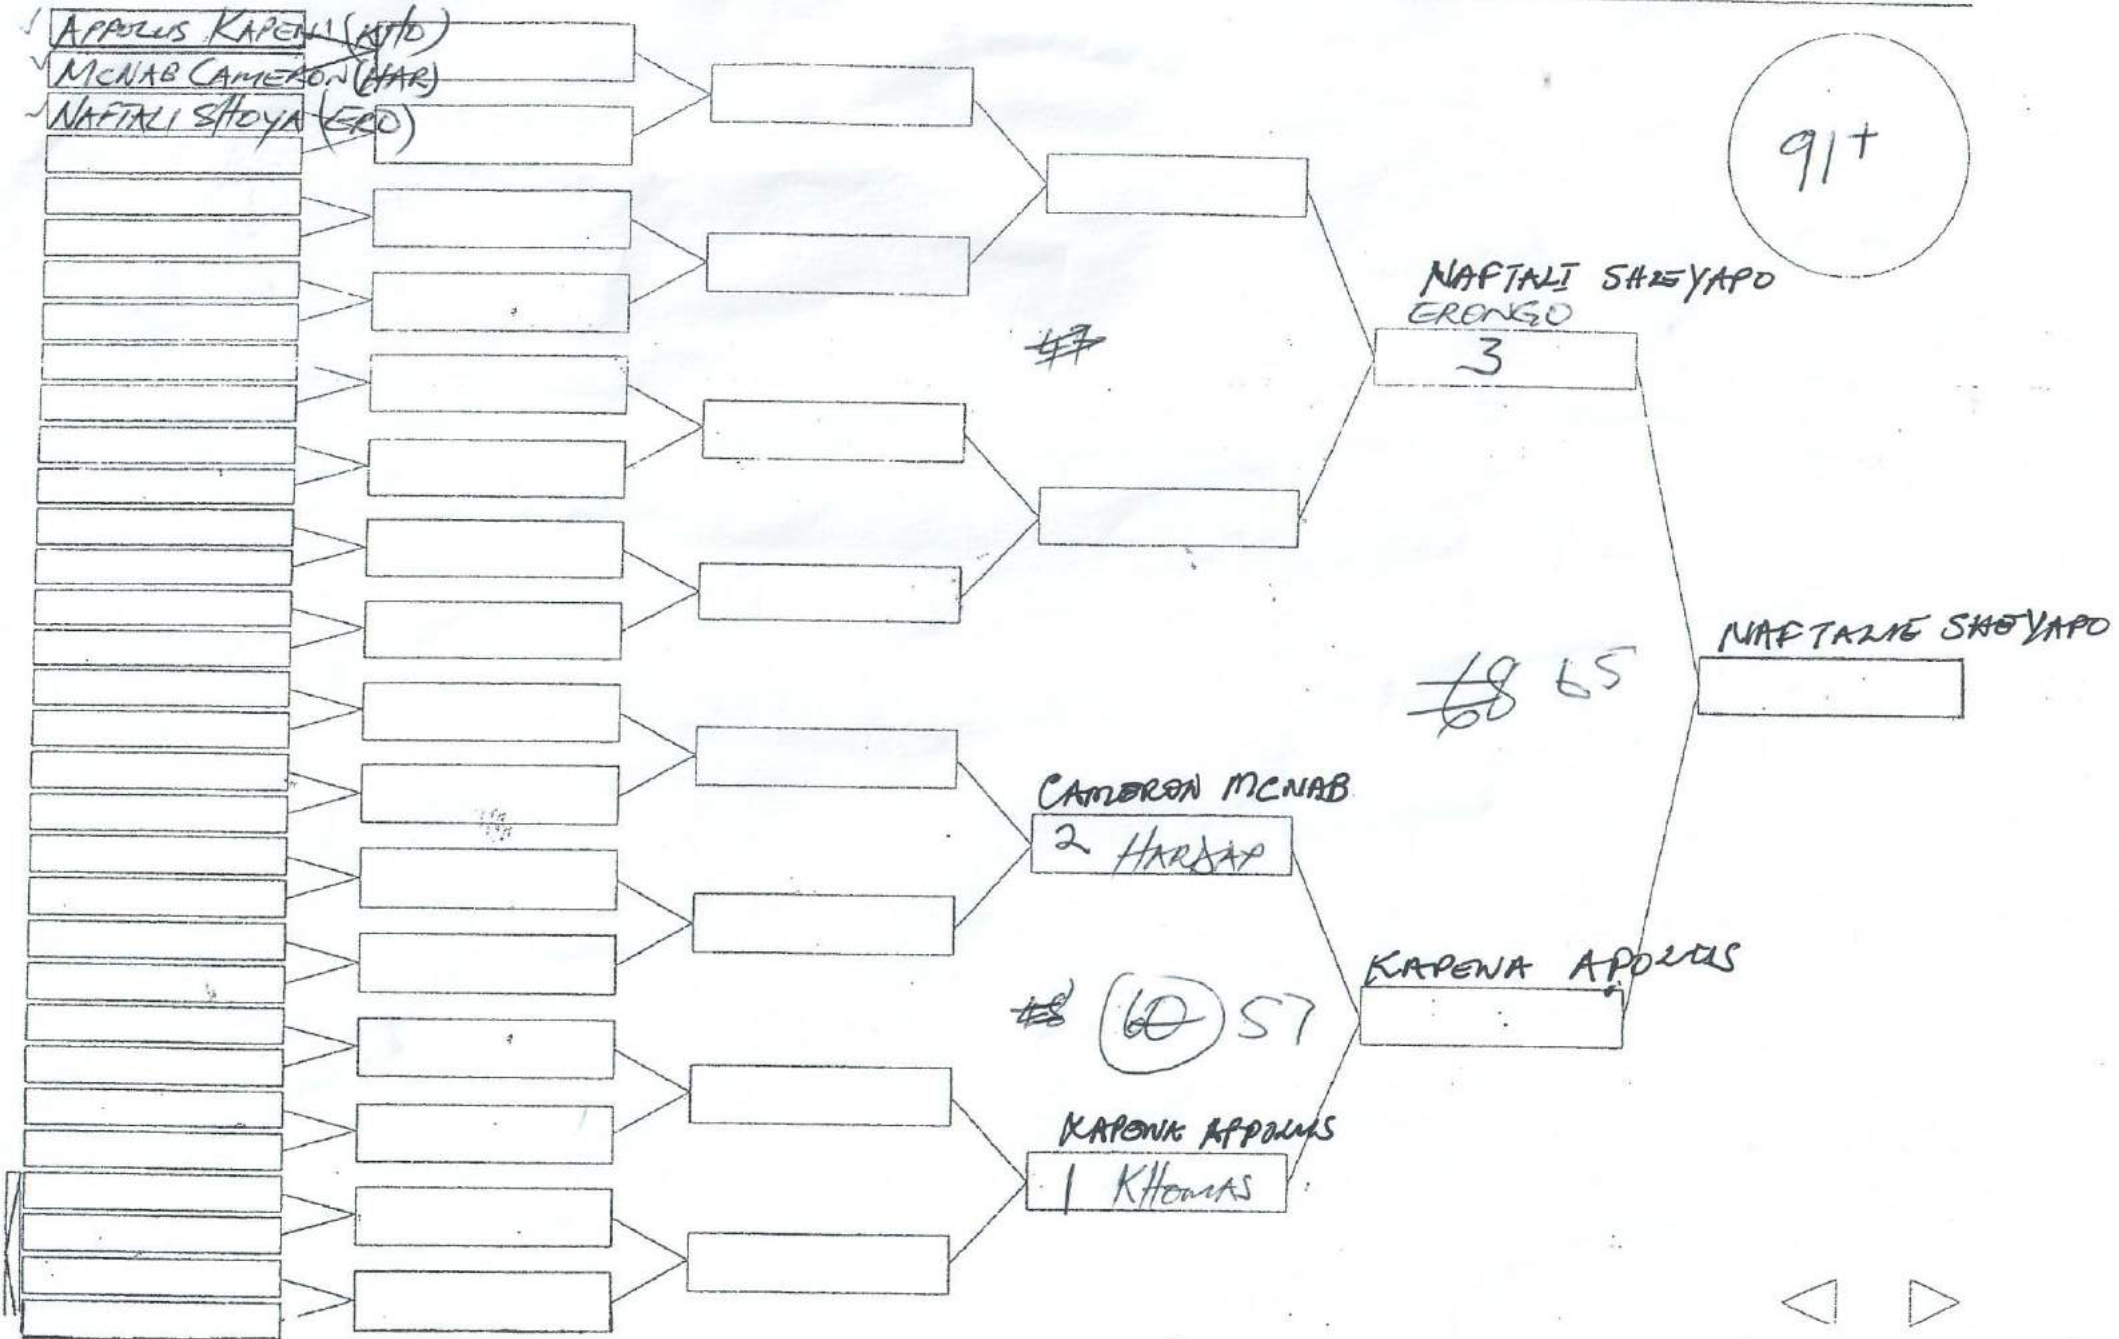 APPOLUS KAPENA (KHO)
MCNAB CAMERON (HAR)
NAFTALI SHOYA (ERO)
91+
NAFTALI SHEYAPO
ERONGO
3
47
NAFTALIE SHEYAPO
68 65
CAMERON MCNAB
2 HARDAP
KAPENA APOLLUS
60 57
KAPENA APPOLUS
1 KHOMAS